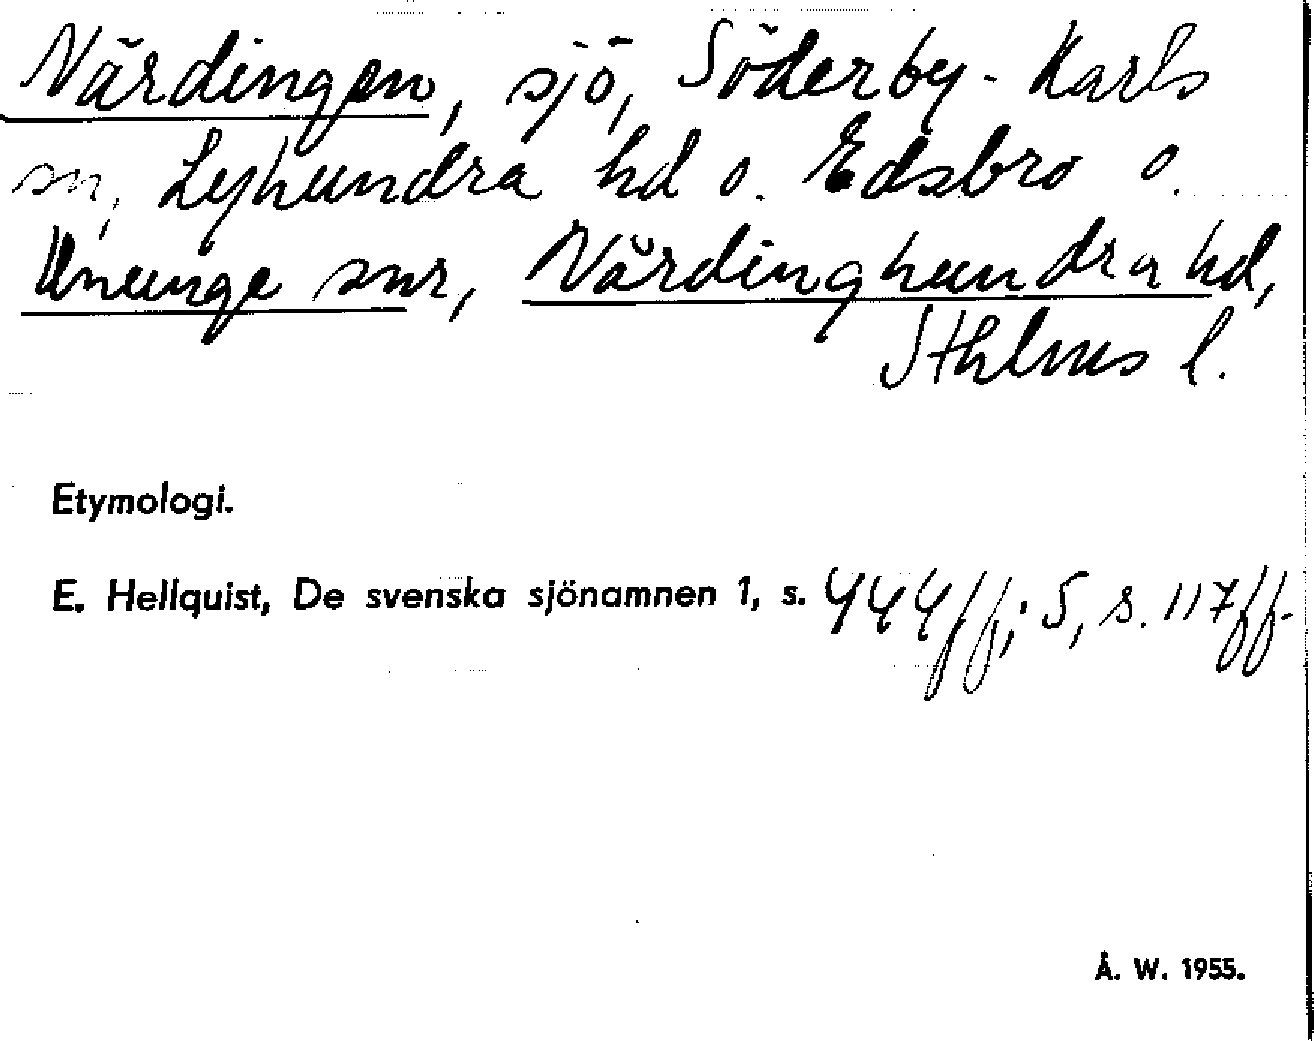 Närdingen, sjö, Söderby-Karls
sn, Lyhundra hd o. Edsbro o.
Ununge snr, Närdinghundra hd,
Sthlms l.
Etymologi.
E. Hellquist, De svenska sjönamnen 1, s. 444ff.; 5, s. 117ff.
Å. W. 1955.